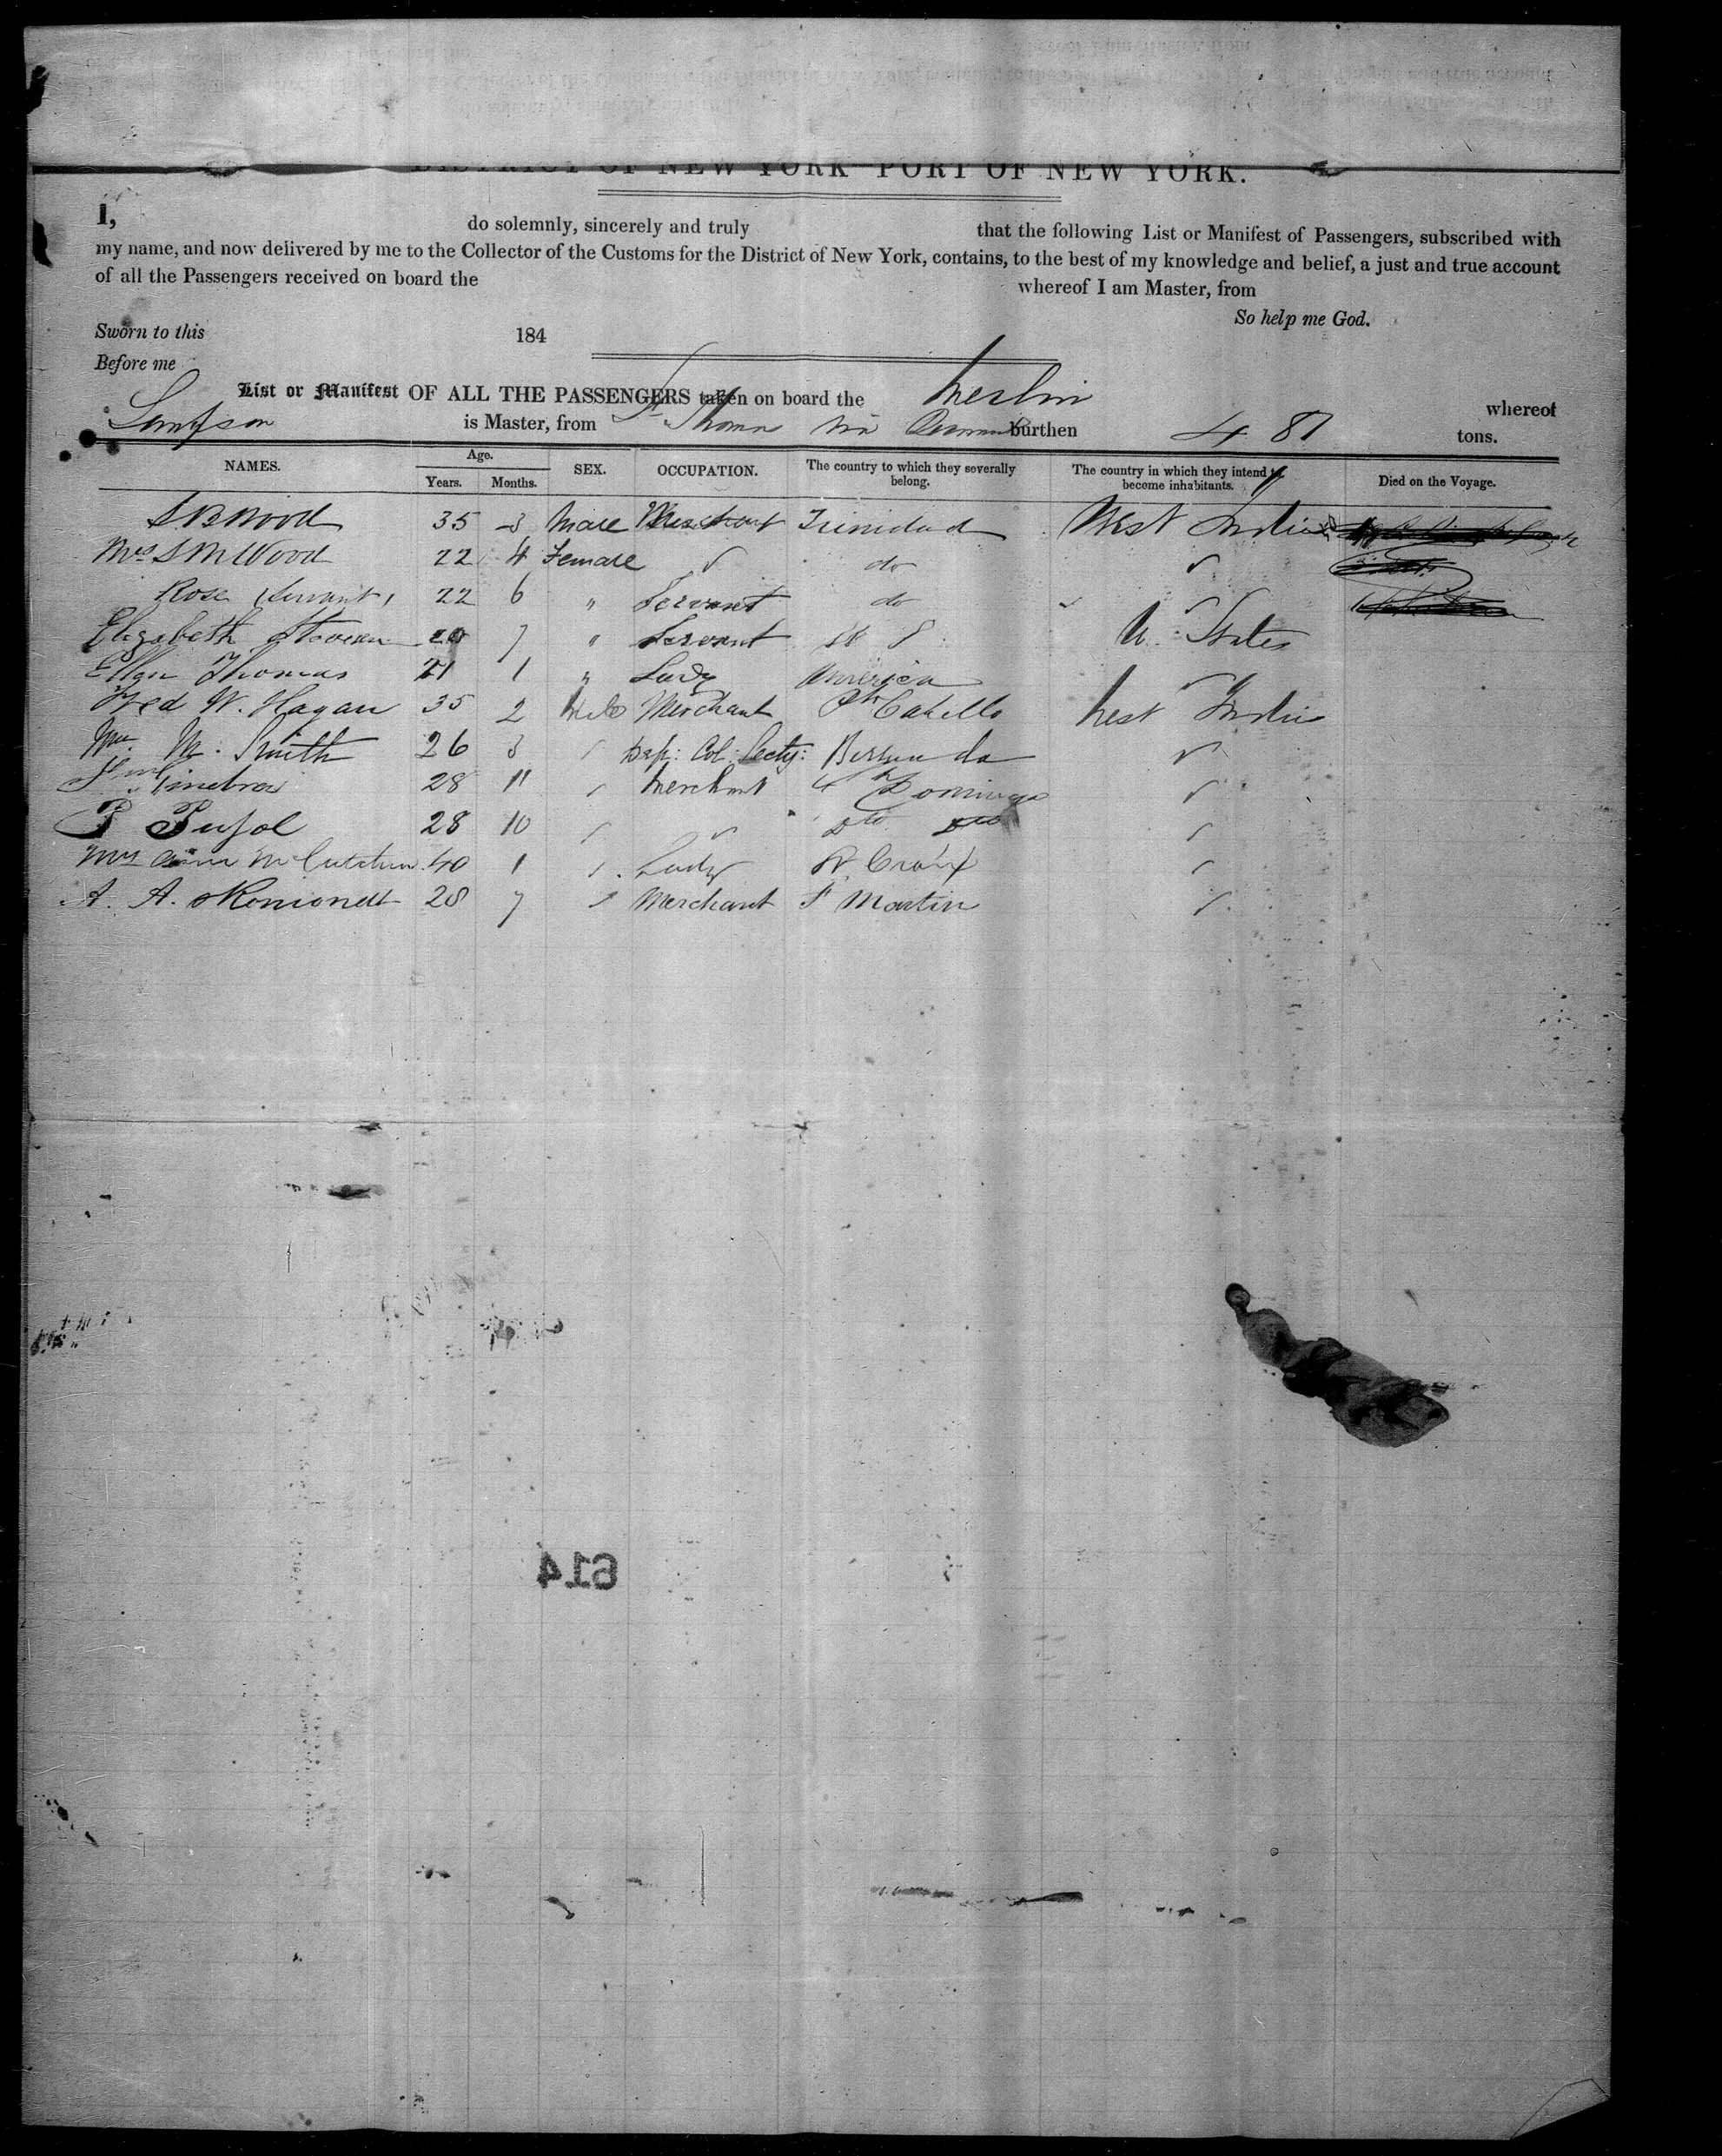 DISTRICT OF NEW YORK PORT OF NEW YORK.
I, do solemnly, sincerely and truly that the following List or Manifest of Passengers, subscribed with
my name, and now delivered by me to the Collector of the Customs for the District of New York, contains, to the best of my knowledge and belief, a just and true account
of all the Passengers received on board the whereof I am Master, from
So help me God.
Sworn to this 184
Before me
List or Manifest OF ALL THE PASSENGERS taken on board the Merlin whereof
is Master, from St Thomas via burthen 481 tons.
NAMES. Age. Years. Months. SEX. OCCUPATION. The country to which they severally belong. The country in which they intend to become inhabitants. Died on the Voyage.
S B Wood 35 3 Male Merchant Trinidad West Indies
Mrs S M Wood 22 4 Female do
Rose (Servant) 22 6 " Servant do
Elizabeth 7 " Servant U. States
Ellen Thomas 21 1 " Lady America
Fred W. Hagan 35 2 Male Merchant Cabello West Indies
M. Smith 26 3 Dep: Col: Secty: Bermuda
Ginebra 28 11 Merchant St Domingo
P Pujol 28 10 Dto Dto
Mrs Ann McCutchen 40 1 Lady St. Croix
A. A. 28 7 Merchant St Martin
614